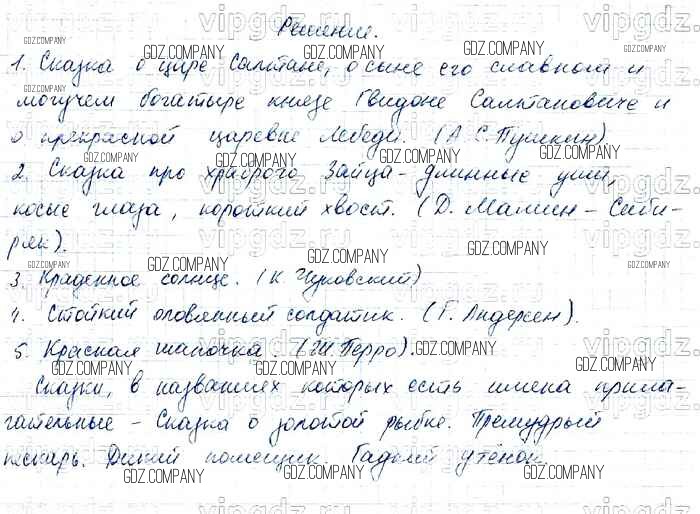 Решение.
1. Сказка о царе Салтане, о сыне его славном и
могучем богатыре князе Гвидоне Салтановиче и
о прекрасной царевне Лебеди. (А.С. Пушкин)
2. Сказка про храброго Зайца - длинные уши,
косые глаза, короткий хвост. (Д. Мамин - Сиби-
ряк).
3. Краденное солнце. (К. Чуковский)
4. Стойкий оловянный солдатик. (Г. Андерсен).
5. Красная шапочка. (Ш. Перро).
Сказки, в названиях которых есть имена прила-
гательные - Сказка о золотой рыбке. Премудрый
пескарь. Дикий помещик. Гадкий утёнок.
GDZ.COMPANY
vipgdz.ru